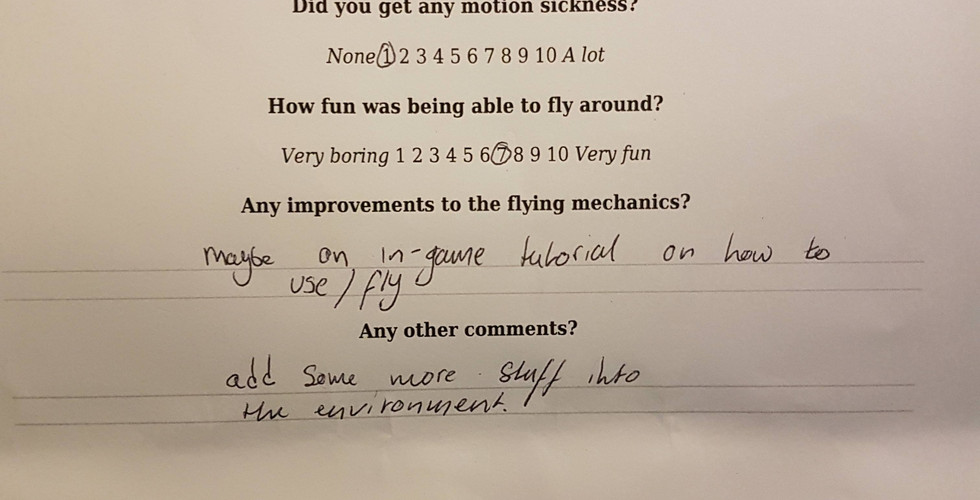 Did you get any motion sickness?
None 1 2 3 4 5 6 7 8 9 10 A lot
How fun was being able to fly around?
Very boring 1 2 3 4 5 6 7 8 9 10 Very fun
Any improvements to the flying mechanics?
maybe an in-game tutorial on how to
use / fly
Any other comments?
add some more stuff into
the environment.